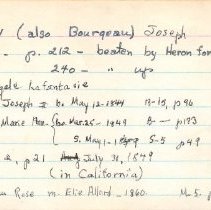 (also Bourgeau) Joseph
- p. 212 - beaten by Heron for
240 - " ups
Lafantasie
Joseph I b. May 12-1844 B-15, p 96
Marie Rose b. Mar. 25-1849 B - p 93
S. May 1 - S-5 p 49
p 21 July 31, 1849
(in California)
Rose m. Elie Allard - 1860. M. 5.